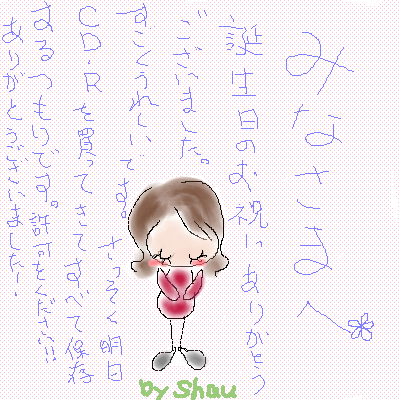 みなさまへ
誕生日のお祝いありがとう
ございました。
すごくうれしいです。
さっそく明日
CD-Rを買ってきてすべて保存
するつもりです。許可をください!!
ありがとうございました!
by Shau